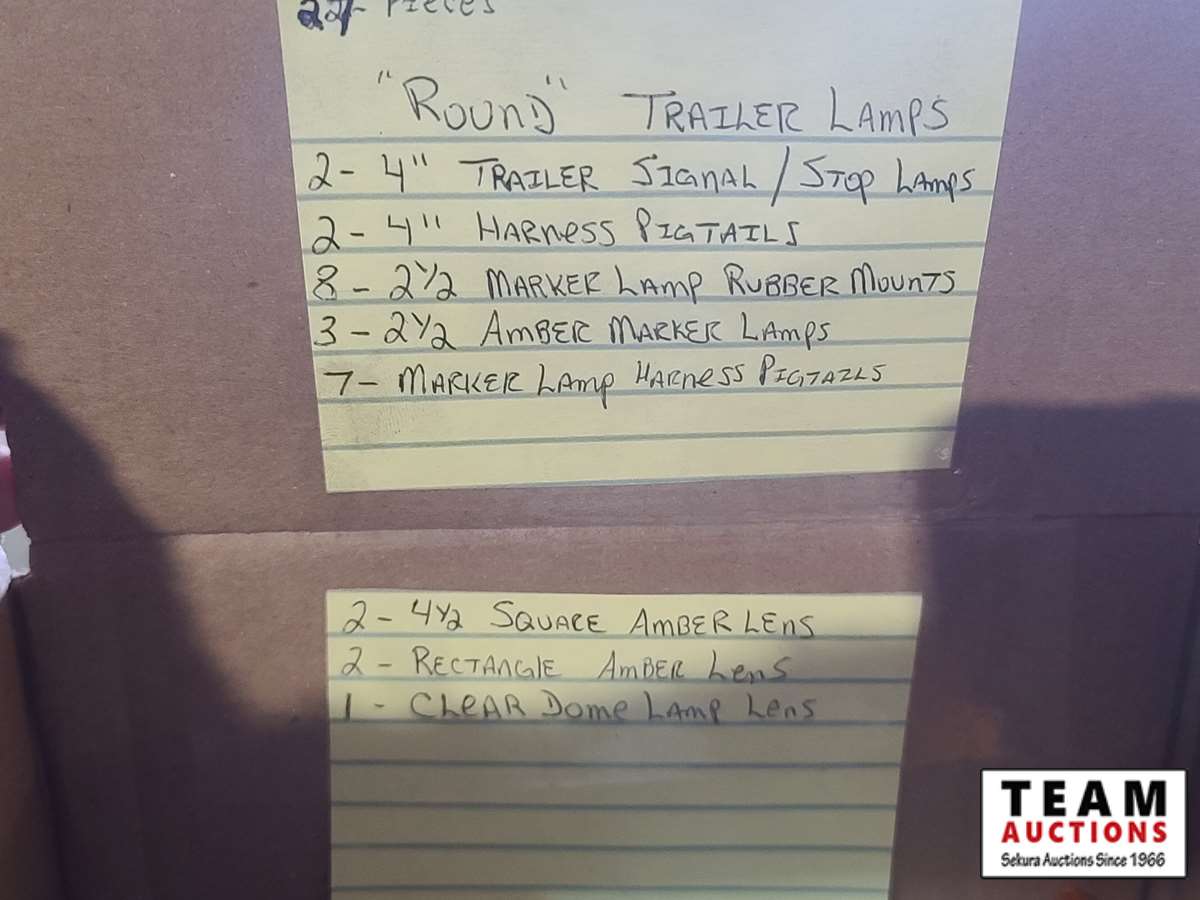 22- PIECES
"ROUND" TRAILER LAMPS
2- 4" TRAILER SIGNAL / STOP LAMPS
2- 4" HARNESS PIGTAILS
8 - 2 1/2 MARKER LAMP RUBBER MOUNTS
3 - 2 1/2 AMBER MARKER LAMPS
7 - MARKER LAMP HARNESS PIGTAILS
2 - 4 1/2 SQUARE AMBER LENS
2 - RECTANGLE AMBER LENS
1 - CLEAR DOME LAMP LENS
TEAM
AUCTIONS
Sekura Auctions Since 1966